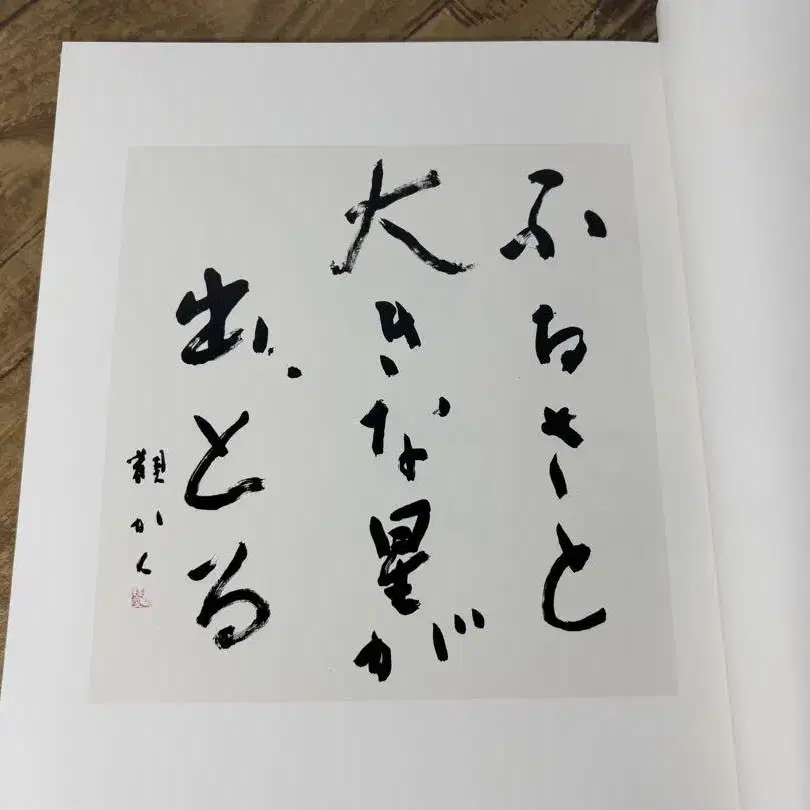 ふるさと
大きな星が
出とる
かく